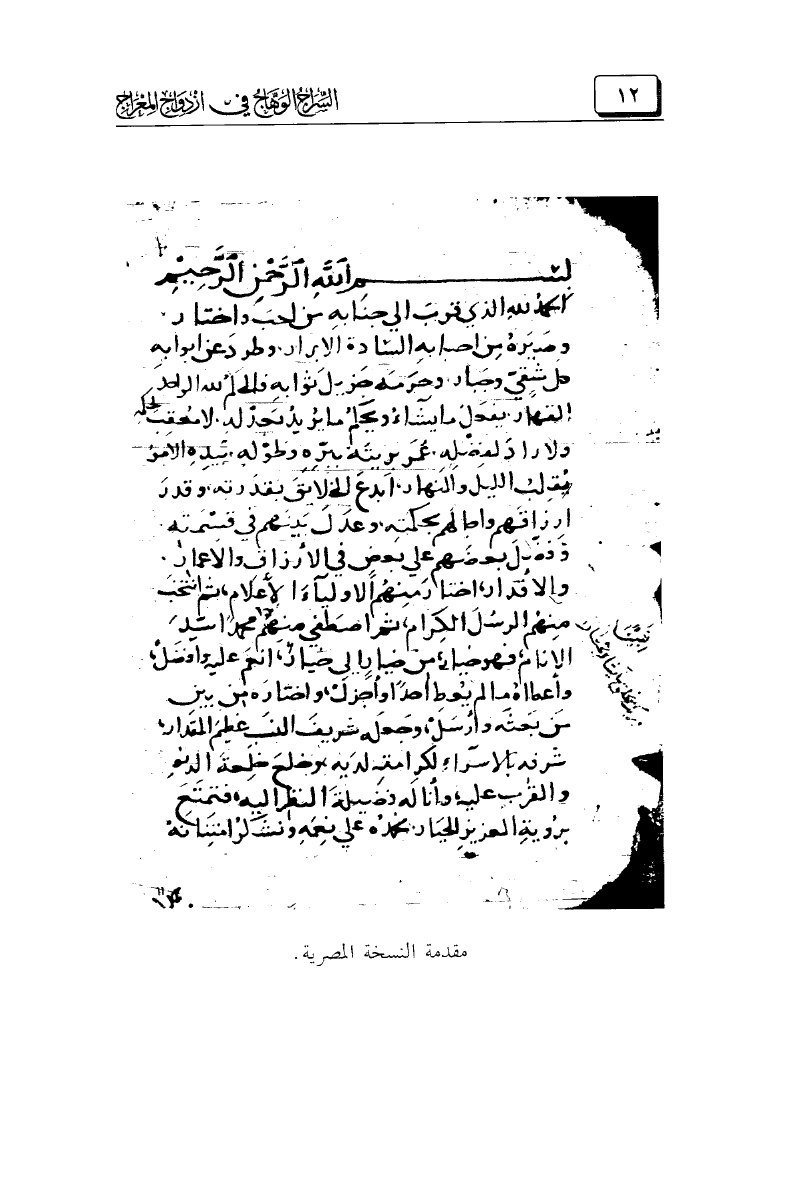 ١٢
السراج الوهاج في ازدواج المعراج
بسم الله الرحمن الرحيم
الحمد لله الذي قرب الي جنابه من احب واختار
وصيره من احبابه السادة الابرار وطرد عن ابوابه
كل شقي وجبار وحرمه جزيل ثوابه فالحكم لله الواحد
القهار يفعل ما يشاء ويحكم ما يريد لا معقب لحكمه
ولا راد لفضله عم بريته ببره وطوله بيده الامور
مقلب الليل والنهار ابدع الخلائق بقدرته وقدر
ارزاقهم واجالهم بحكمته وعدل بينهم في قسمته
ففضل بعضهم علي بعض في الأرزاق والاعمار
والاقدار اختار منهم الاولياء الأعلام ثم انتخب
منهم الرسل الكرام ثم اصطفي منهم محمدا سيد
الانام فهو خيار من خيار الي خيار انعم عليه وافضل
وأعطاه ما لم يعط أحدا وأجزل واختاره من بين
من بعثه وأرسل وجعله شريف النسب عظيم المقدار
شرفه بالاسراء لكرامته لديه وخلع خلعة الدنو
والقرب عليه وأناله فضيلة النظر اليه فتمتع
برؤية العزيز الجبار نحمده علي نعمه ونشكر امتنانه
مقدمة النسخة المصرية.